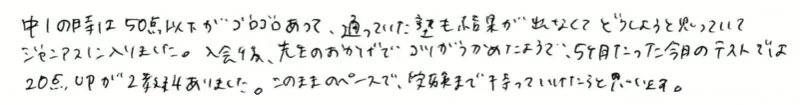 中1の時は50点以下がゴロゴロあって、通っていた塾も結果が出なくてどうしようと思っていて
ジャニアスに入りました。入会後、先生のおかげでコツがつかめたようで、5ヶ月たった今回のテストでは
20点UPが2教科ありました。このままのペースで、受験まで持っていけたらと思います。